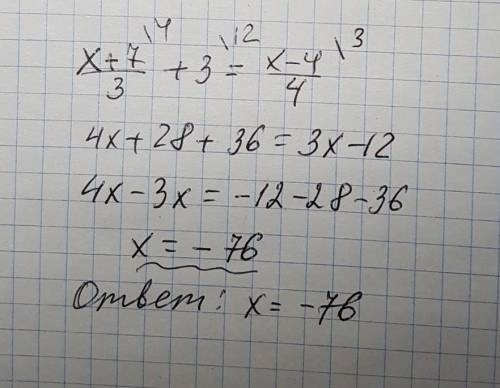 (x+7)/3 \4 + 3 \12 = (x-4)/4 \3
4x+28+36=3x-12
4x-3x=-12-28-36
x=-76
Ответ: x=-76